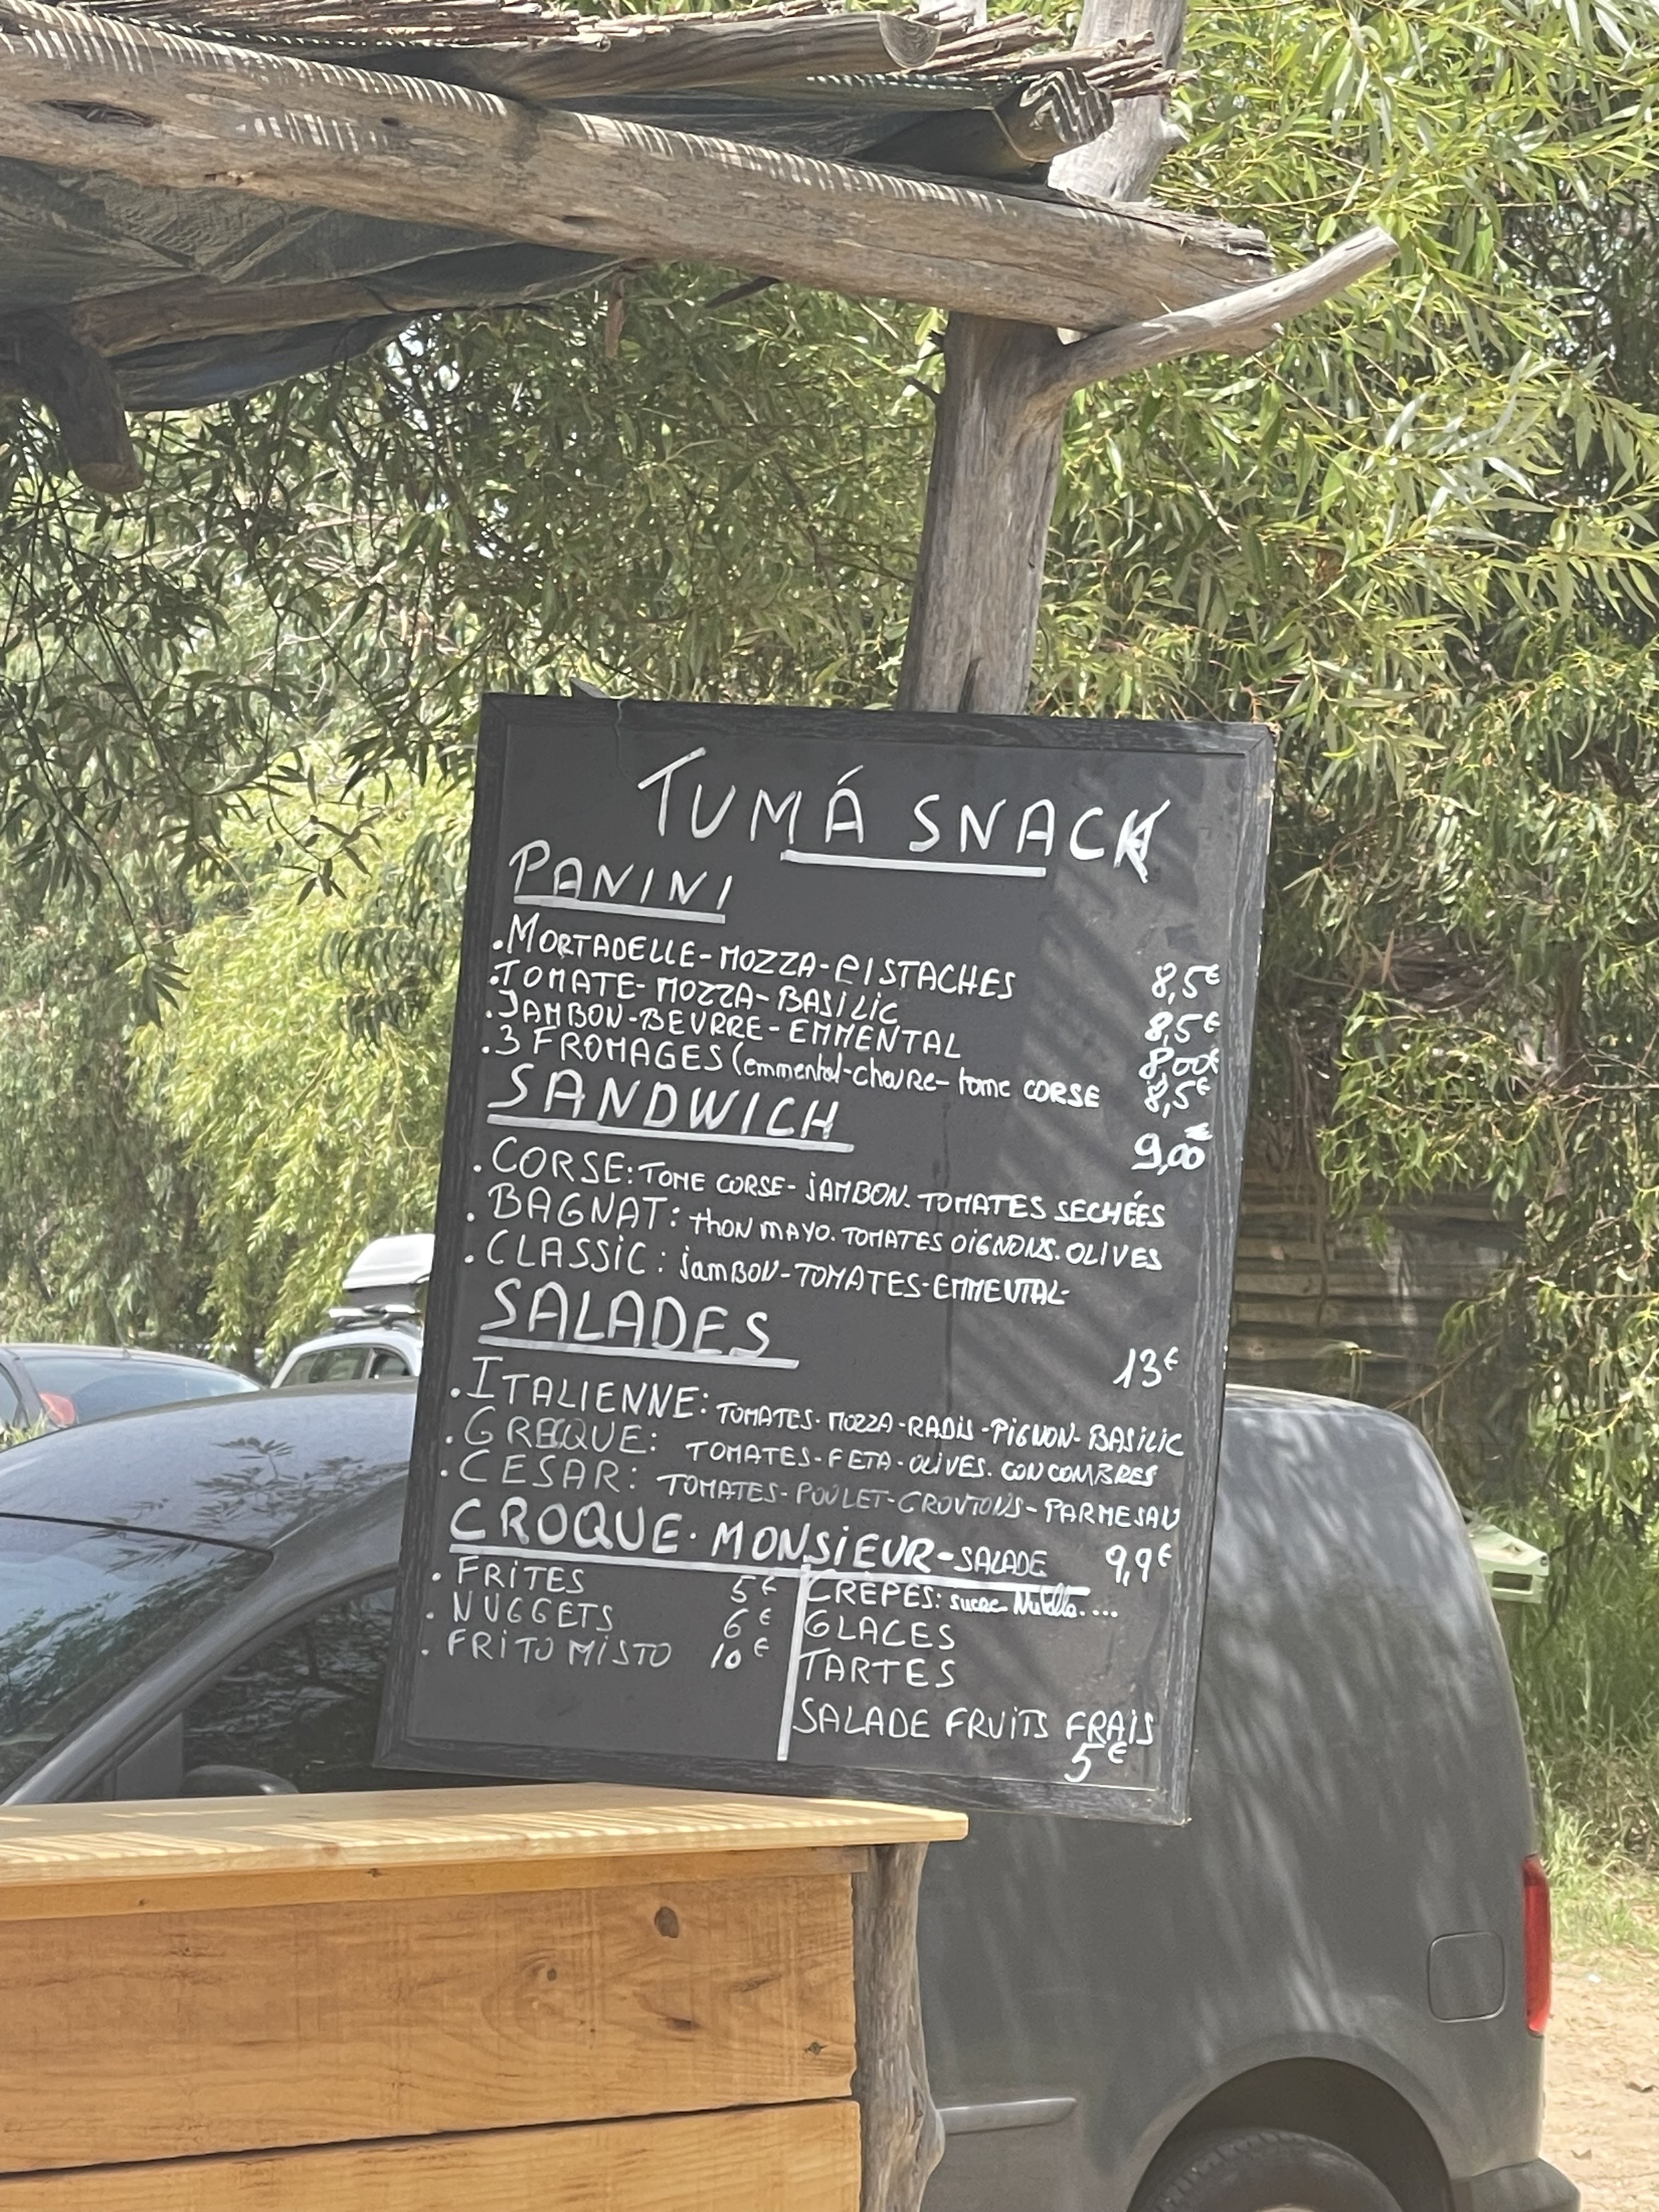 TUMÁ SNACK
PANINI
.MORTADELLE-MOZZA-PISTACHES 8,5€
.TOMATE-MOZZA-BASILIC 8,5€
.JAMBON-BEURRE-EMMENTAL 8,00€
.3 FROMAGES (emmental-chevre-tome CORSE 8,5€
SANDWICH 9,00€
.CORSE: TOME CORSE-JAMBON.TOMATES SECHÉES
.BAGNAT: thon MAYO.TOMATES OIGNONS.OLIVES
.CLASSIC: jamBON-TOMATES-EMMENTAL-
SALADES 13€
.ITALIENNE: TOMATES-MOZZA-RADIS-PIGNON-BASILIC
.GRECQUE: TOMATES-FETA-OLIVES.CONCOMBRES
.CESAR: TOMATES-POULET-CROUTONS-PARMESAN
CROQUE.MONSIEUR-SALADE 9,9€
.FRITES 5€
.NUGGETS 6€
.FRITO MISTO 10€
CRÈPES: sucre-Nutella....
GLACES
TARTES
SALADE FRUITS FRAIS
5€